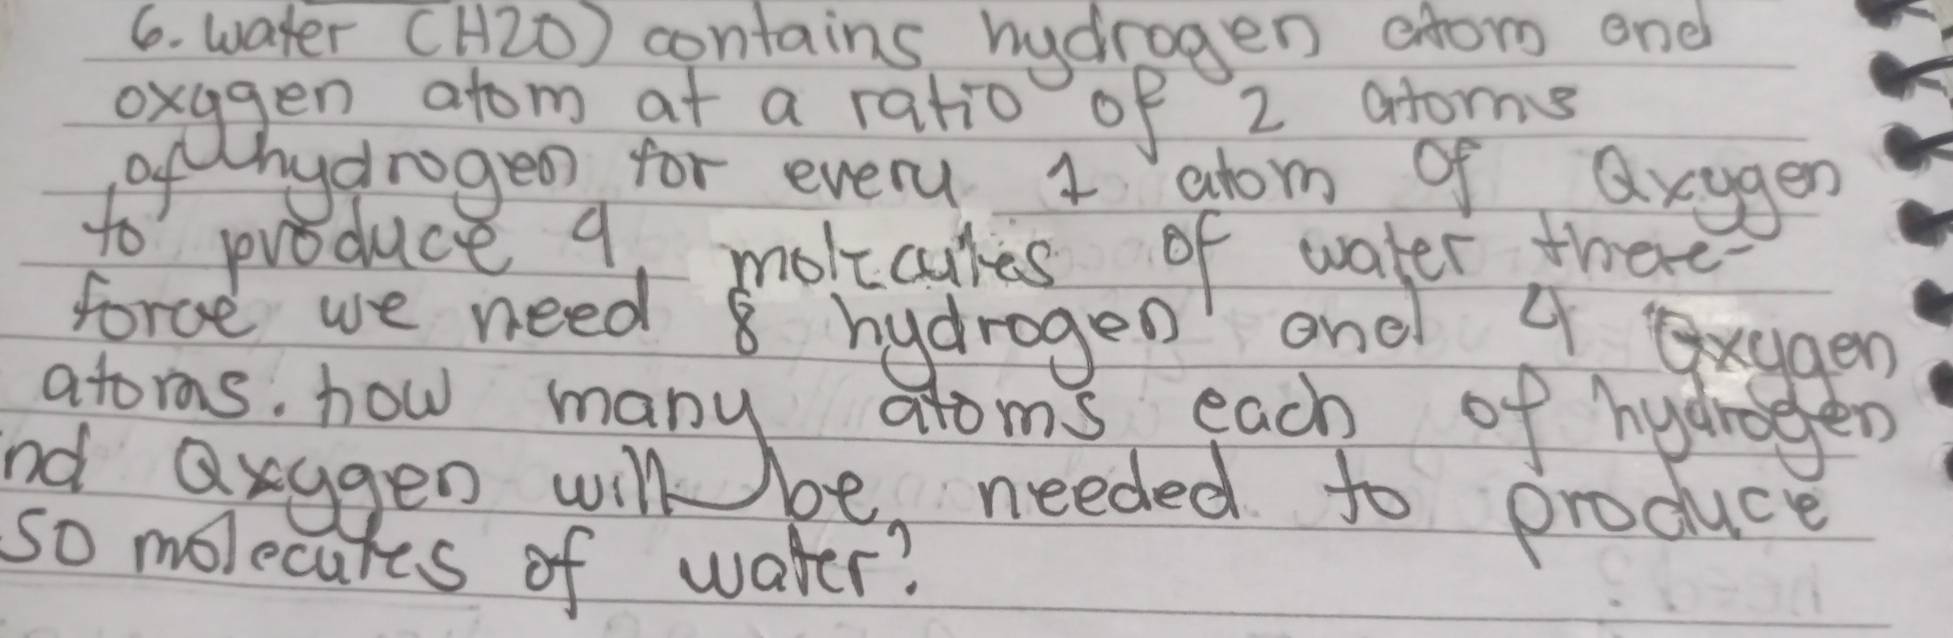 6. water (H2O) contains hydrogen atom and
oxygen atom at a ratio of 2 atoms
of hydrogen for every 1 atom of Oxygen
to produce 4 molecules of water there-
force we need 8 hydrogen and 4 Oxygen
atoms. how many atoms each of hydrogen
nd Oxygen will be needed to produce
50 molecules of water?